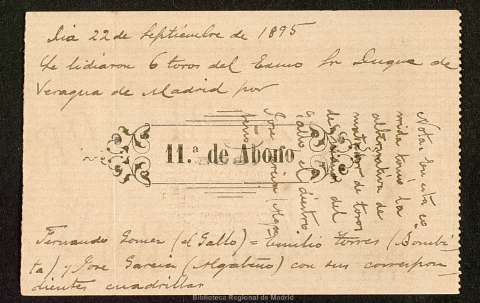 Dia 22 de Septiembre de 1895
Se lidiaron 6 toros del Exmo Sr Duque de
Veragua de Madrid por
11.ª de Abono
Nota: en esta co
rrida tomó la
alternativa de
matador de toros
de manos del
Gallo el diestro
José Garcia Alga
beño
Fernando Gomez (el Gallo) = Emilio Torres (Bombi
ta) y Jose Garcia (Algabeño) con sus correspon
dientes cuadrillas
Biblioteca Regional de Madrid